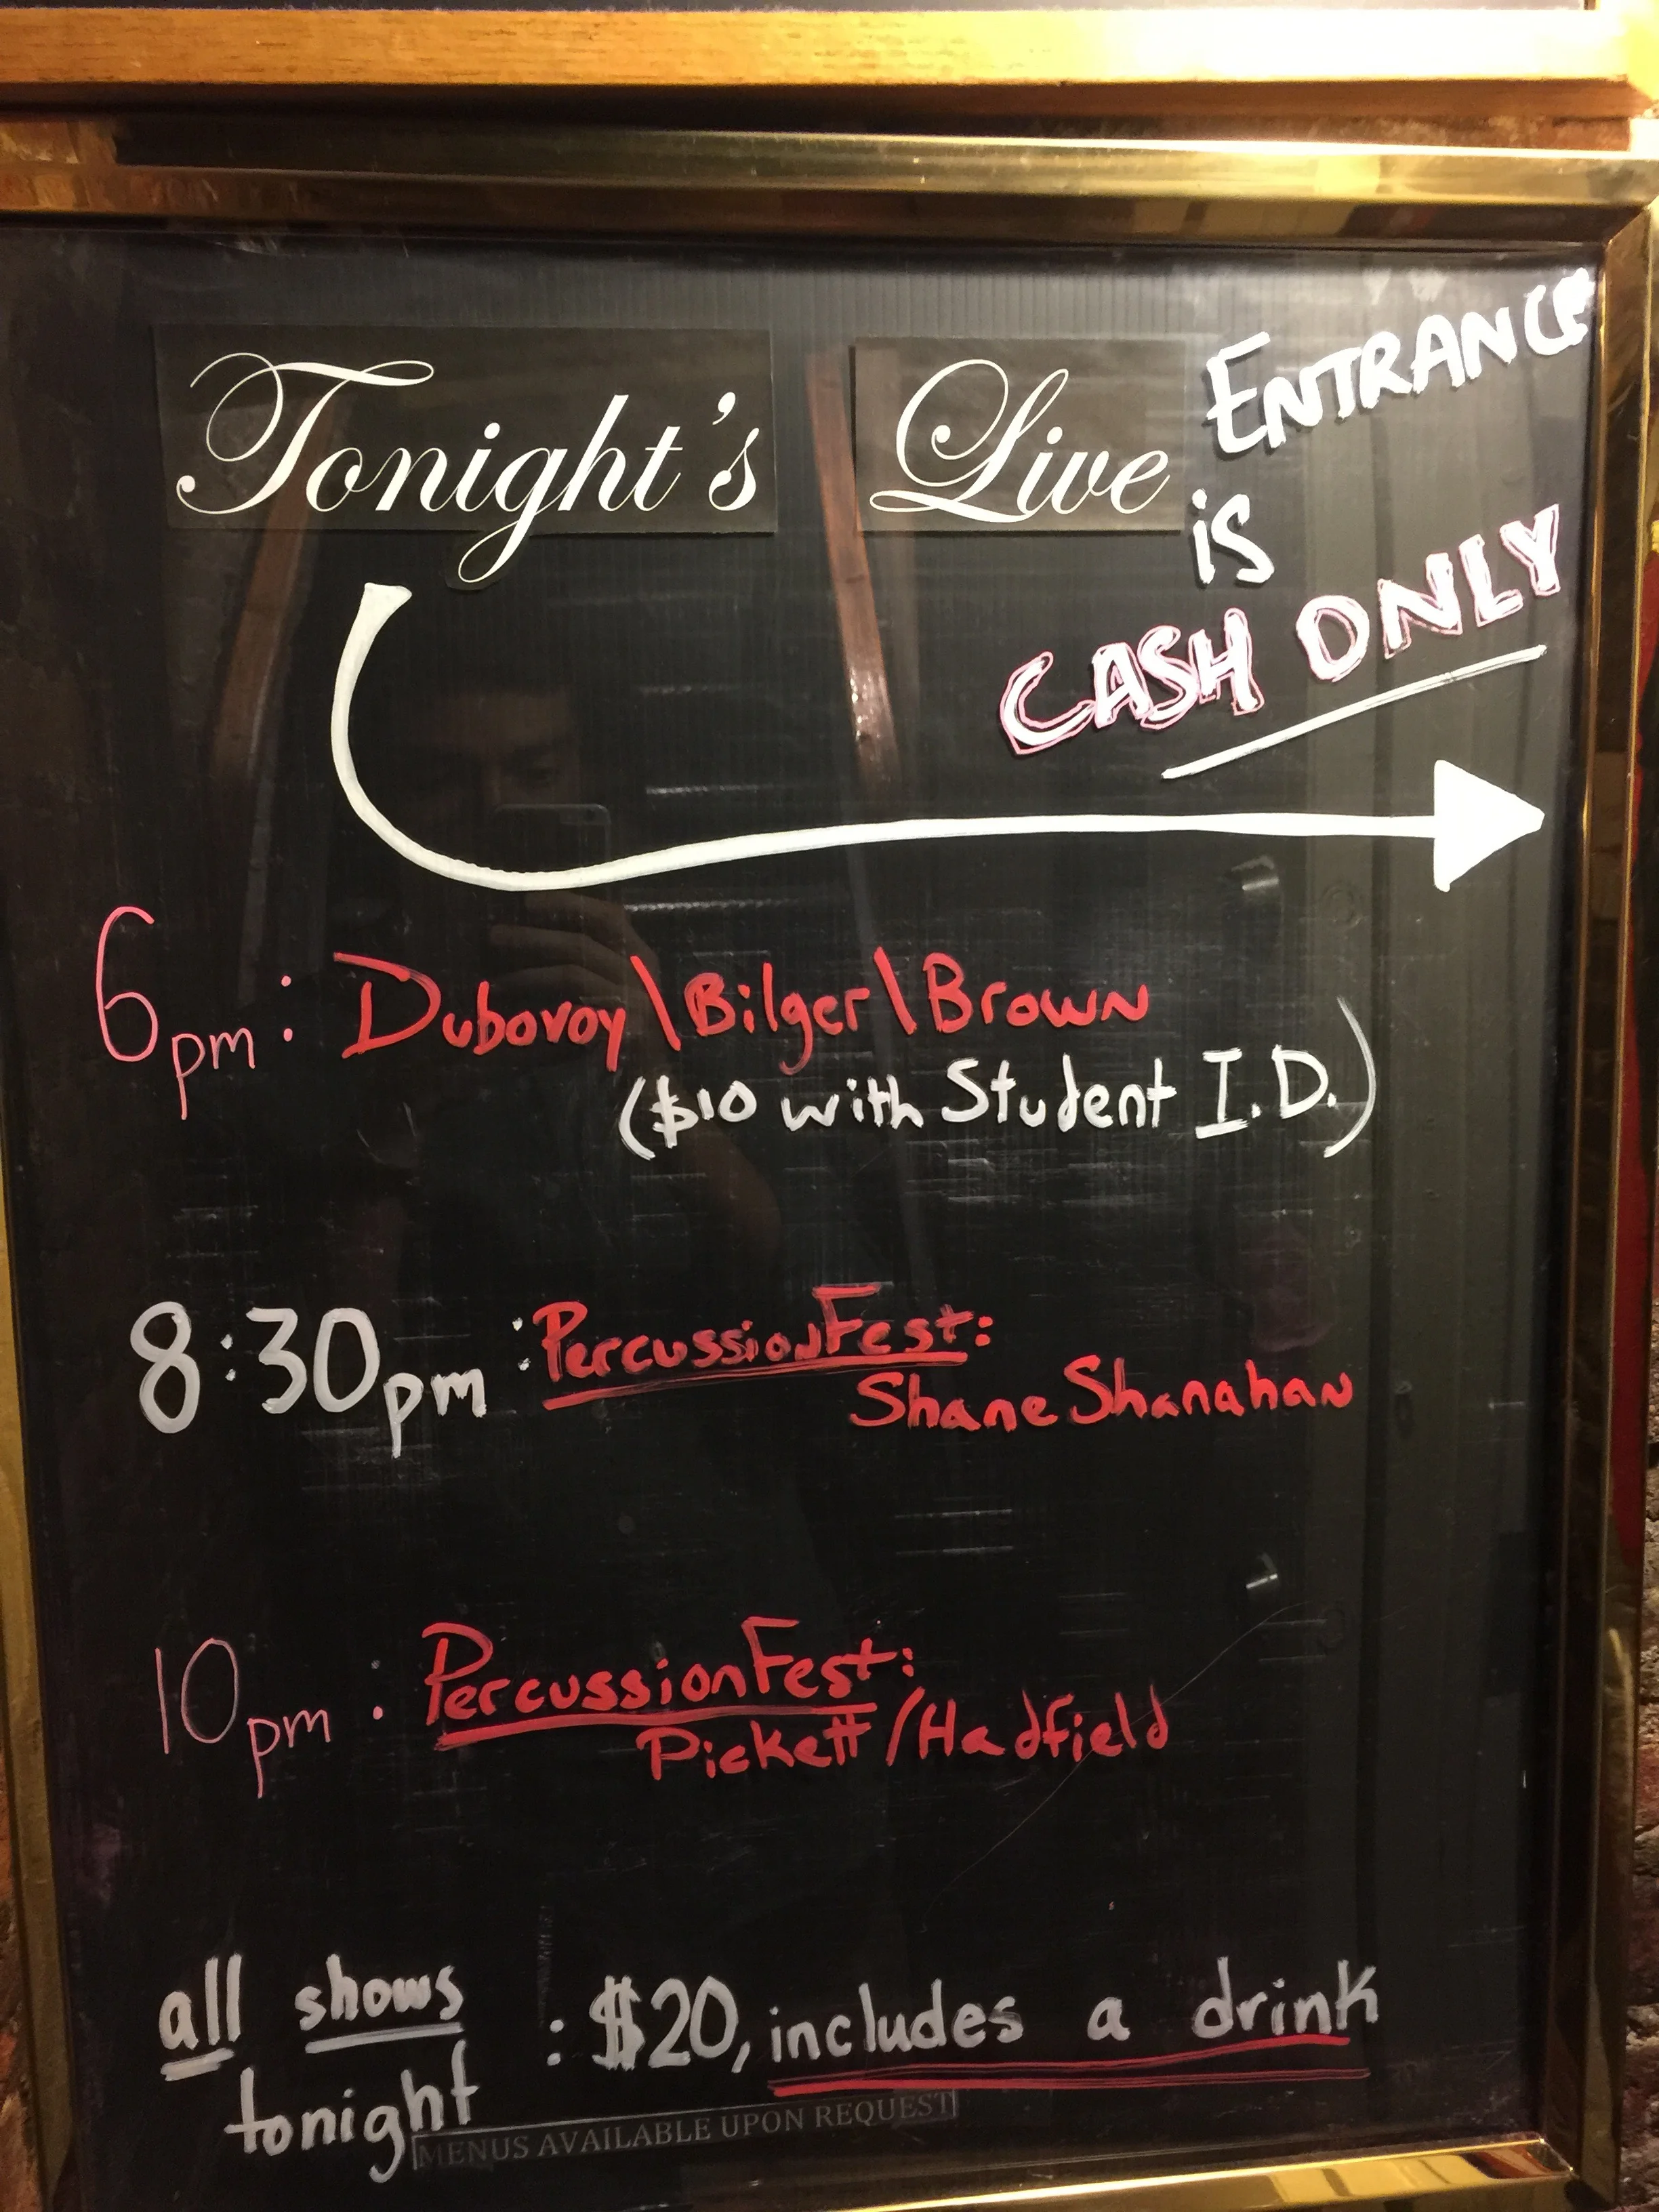 Tonight's Live
ENTRANCE
is
CASH ONLY
6pm: Dubovoy\Bilger\Brown
($10 with Student I.D.)
8:30pm: PercussionFest:
Shane Shanahan
10pm: PercussionFest:
Pickett/Hadfield
all shows : $20, includes a drink
tonight
MENUS AVAILABLE UPON REQUEST